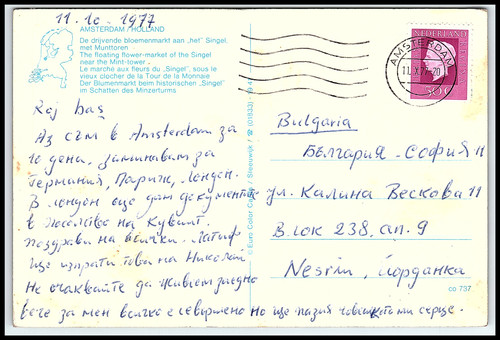 11.10.1977
AMSTERDAM / HOLLAND
De drijvende bloemenmarkt aan „het" Singel,
met Munttoren
The floating flower-market of the Singel
near the Mint-tower
Le marché aux fleurs du „Singel", sous le
vieux clocher de la Tour de la Monnaie
Der Blumenmarkt beim historischen „Singel"
im Schatten des Münzerturms
Аз съм в Amsterdam за
10 дена, заминавам за
Германия, Париж, Лондон.
В Лондон още дам документите
в посолство на Кувейт.
поздрави на всички. Латиф
ще изпрати това на Николай
Не очаквайте да живеем заедно
вече за мен всичко е свършено но ще пазия човешкото ми серце.
© Euro Color Cards / Sleeuwijk / ☎ (01833)
NEDERLAND
50 c
AMSTERDAM
Bulgaria
БЪЛГАРИЯ - СОФИЯ 11
ул. Калина Вескова 11
Блок 238, ап. 9
Nesrin, Йорданка
co 737